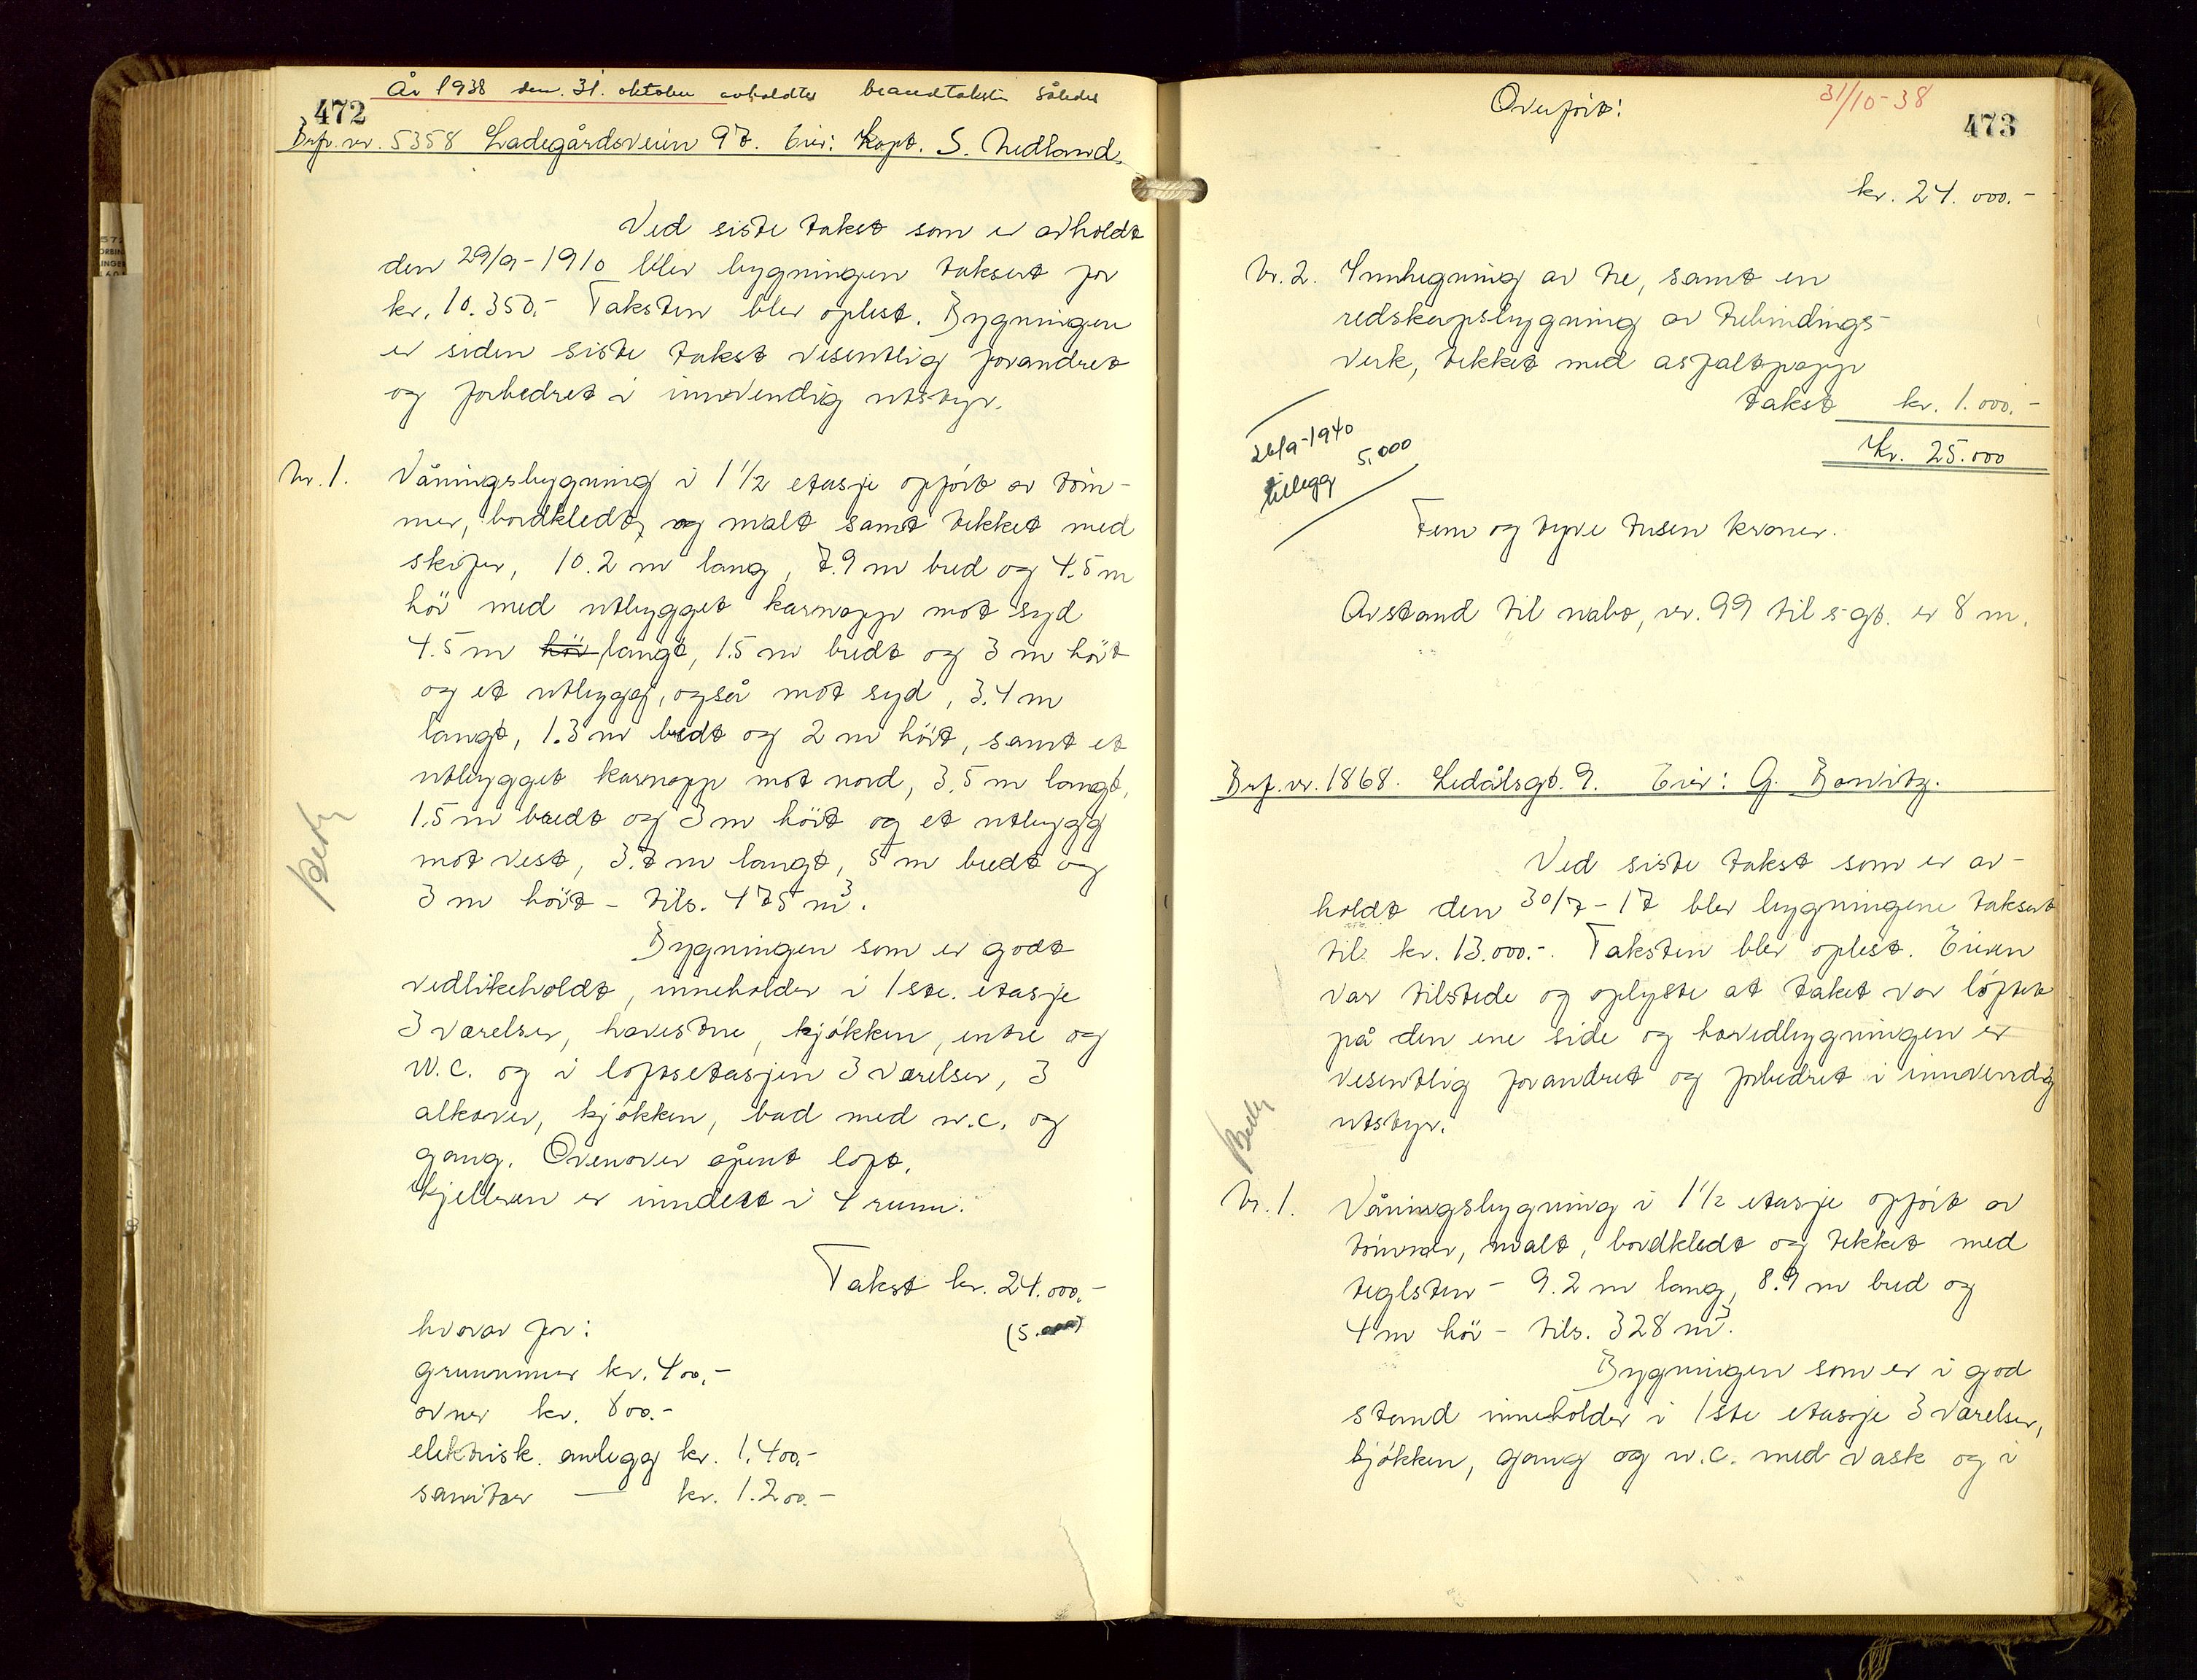 År 1938 den 31. oktober avholdtes brandtakster således
472
Brf. nr. 5358 Ladegårdsveien 97. Eier: Kapt. S. Nedland.
Ved siste takst som er avholdt
den 29/9-1910 blev bygningen taksert for
kr. 10.350.- Taksten blev oplest. Bygningen
er siden siste takst vesentlig forandret
og forbedret i innvendig utstyr.
Nr. 1. Våningsbygning i 1 1/2 etasje opført av töm-
mer, bordkledt, og malt samt tekket med
skifer, 10.2 m lang, 7.9 m bred og 4.5 m
höi med utbygget karnapp mot syd
4.5 m höi langt, 1.5 m bredt og 3 m höit
og et utbygg, også mot syd, 3.4 m
langt, 1.3 m bredt og 2 m höit, samt et
utbygget karnapp mot nord, 3.5 m langt,
1.5 m bredt og 3 m höit og et utbygg
mot vest, 3.7 m langt, 5 m bredt og
3 m höit - tils. 475 m³.
Bygningen som er godt
vedlikeholdt, inneholder i 1ste. etasje
3 værelser, havestue, kjökken, entre og
W.C. og i loftsetasjen 3 værelser, 3
alkover, kjökken, bad med w.c. og
gang. Ovenover åpent loft.
Kjelleren er inndelt i 4 rum.
Takst kr. 24.000.-
hvorav for: (5.000)
grunnmur kr. 400.-
ovner kr. 800.-
elektrisk. anlegg kr. 1.400.-
sanitær — kr. 1.200.-
Overført:
31/10-38
473
kr. 24.000.-
Nr. 2. Innhegning av tre, samt en
redskapsbygning av trebindings-
verk, tekket med asfaltpapp
takst kr. 1.000.-
Kr. 25.000
26/9-1940
tillegg 5.000
Fem og tyve tusen kroner.
Avstand til nabo, nr. 99 til s gt. er 8 m.
Brf. nr. 1868. Ledålsgt. 9. Eier: G. Bowitz.
Ved siste takst som er av-
holdt den 30/7-17 blev bygningene taksert
til kr. 13.000.-. Taksten blev oplest. Eieren
var tilstede og oplyste at taket var löftet
på den ene side og hovedbygningen er
vesentlig forandret og forbedret i innvendig
utstyr.
Nr. 1. Våningsbygning i 1 1/2 etasje opfört av
tömmer, malt, bordkledt og tekket med
teglsten - 9.2 m lang, 8.9 m bred og
4 m höi - tils. 328 m³.
Bygningen som er i god
stand inneholder i 1ste etasje 3 værelser,
kjökken, gang og w.c. med vask og i